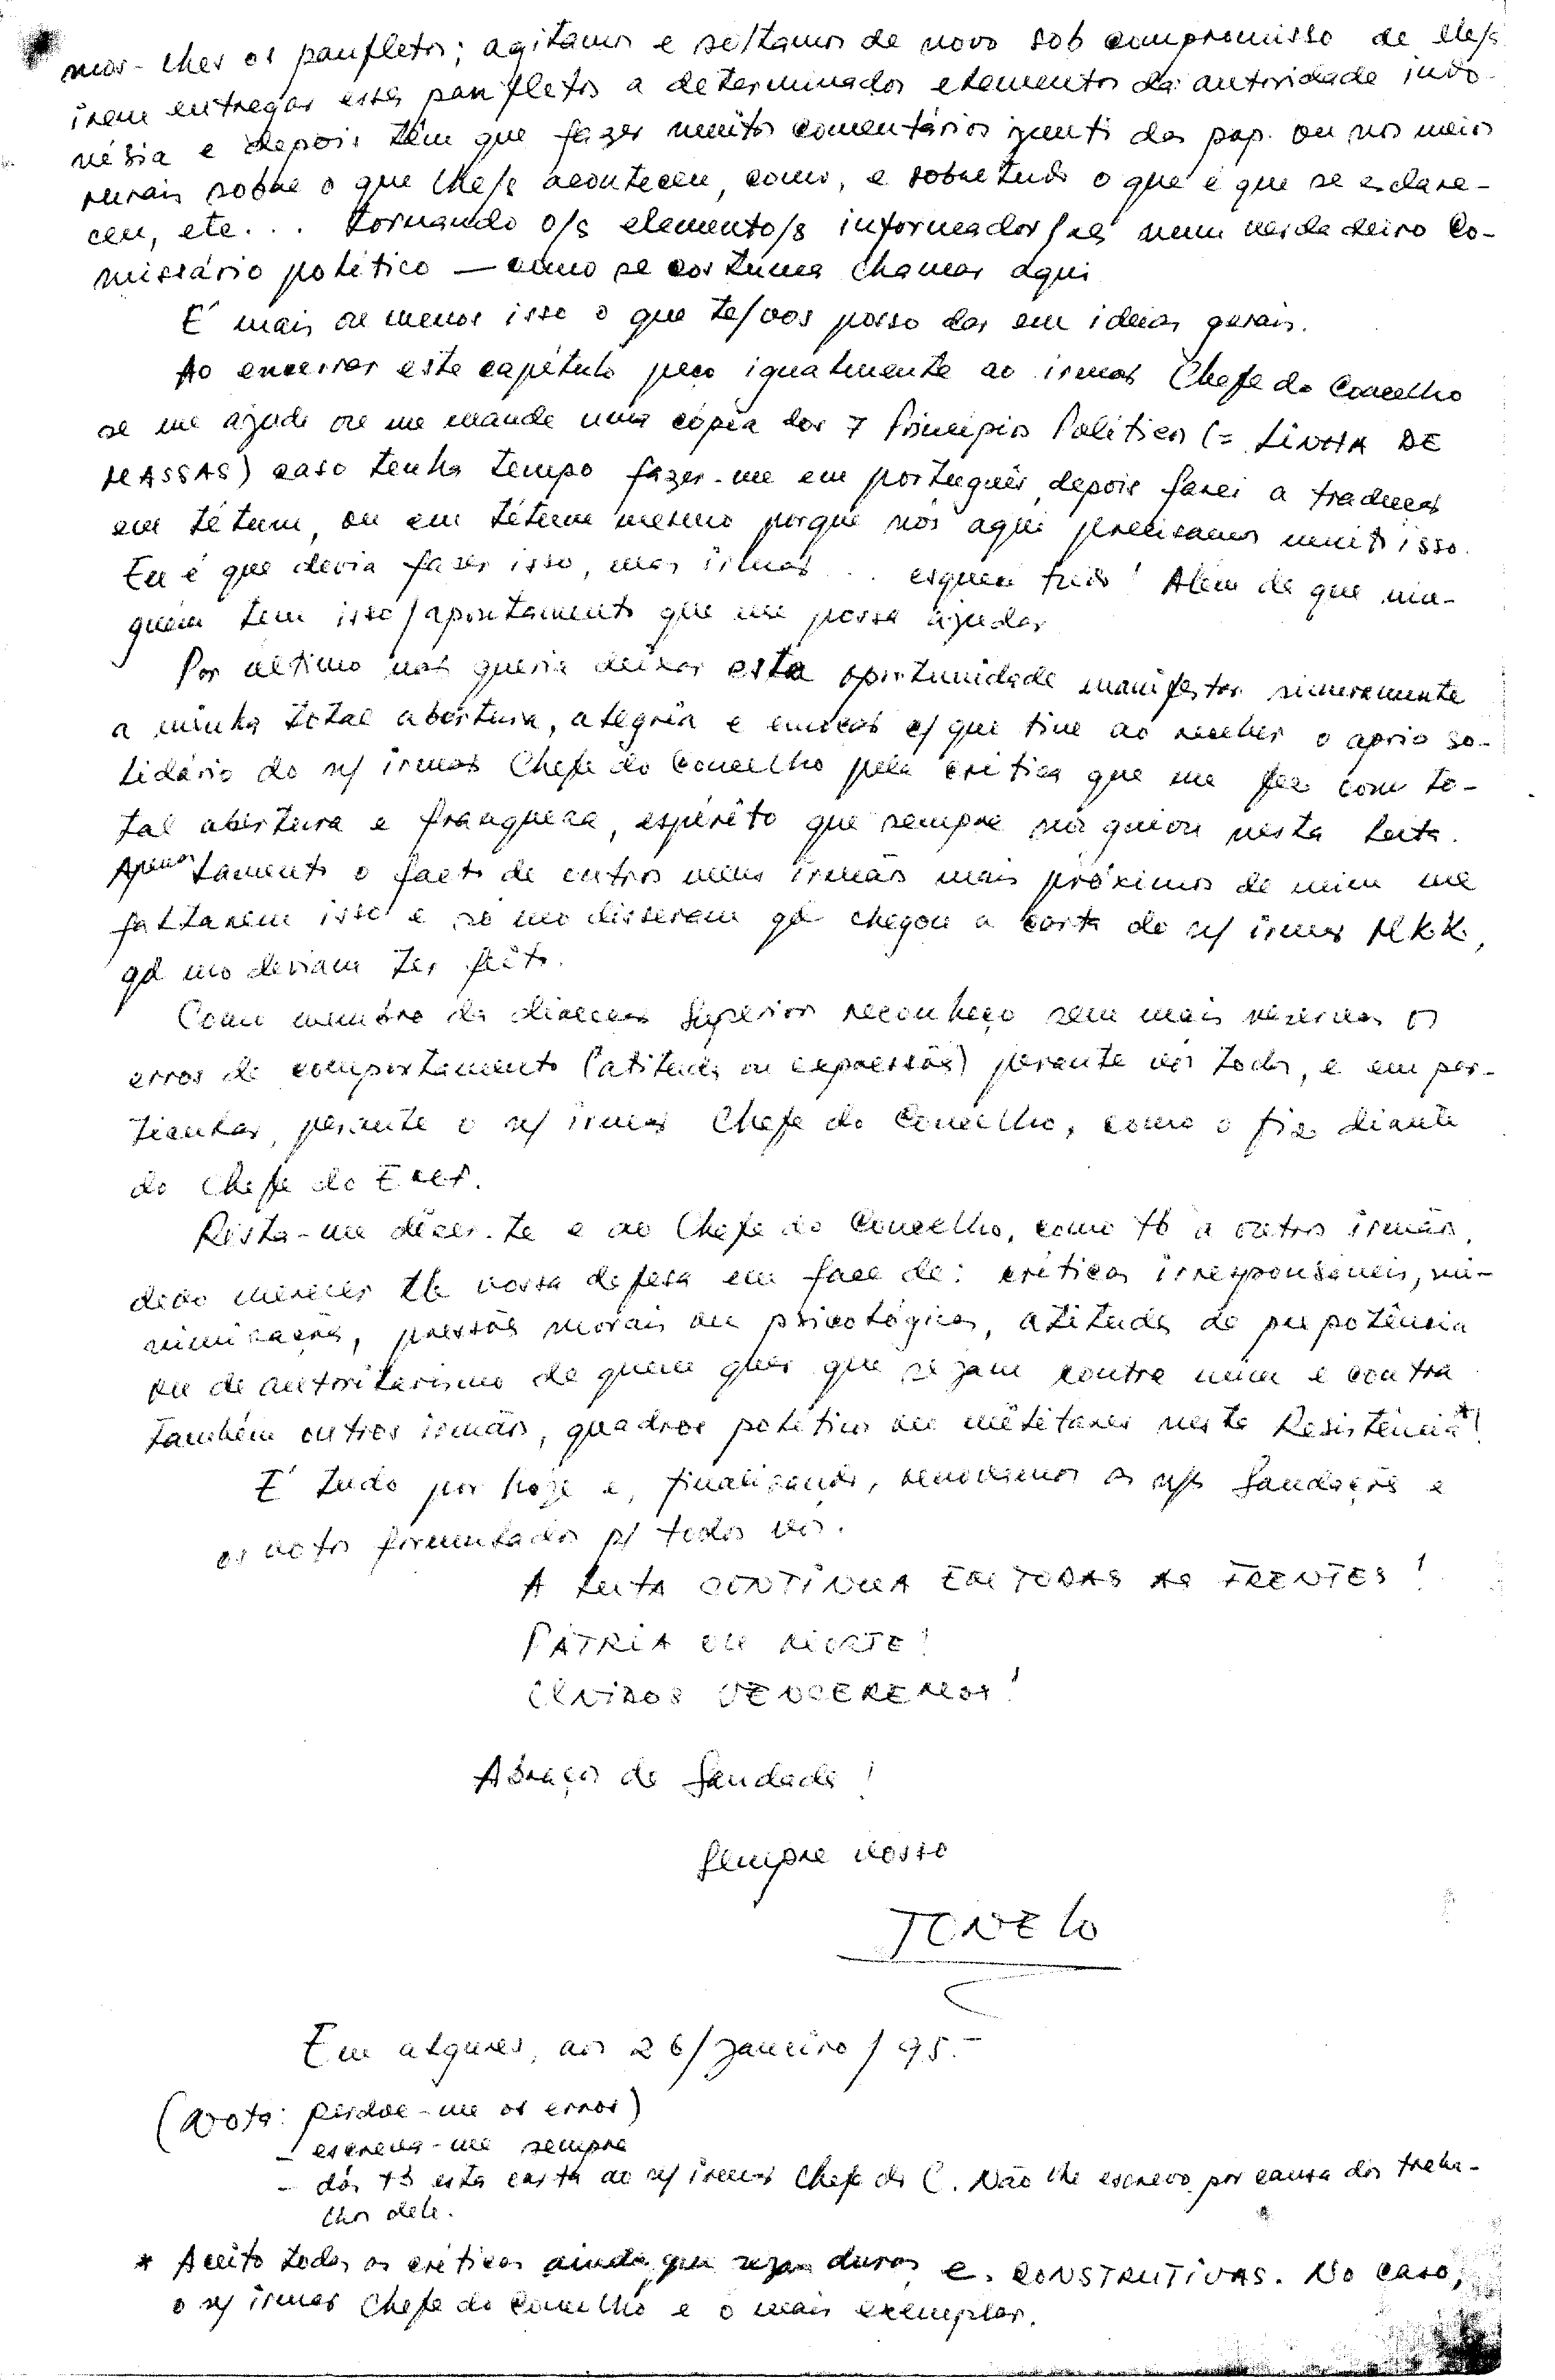 mos-lhes os panfletos; agitamos e soltamos de novo sob compromisso de ele/s
irem entregar esses panfletos a determinados elementos da autoridade indo-
nésia e depois têm que fazer muitos comentários junto das pop. ou nos meios
rurais sobre o que lhe/s aconteceu, como, e sobretudo o que é que se esclare-
ceu, etc... tornando o/s elemento/s informador/res num verdadeiro Co-
missário político — como se costuma chamar aqui
É mais ou menos isso o que te/vos posso dar em ideias gerais.
Ao encerrar este capítulo peço igualmente ao irmão Chefe do Concelho
se me ajude ou me mande uma cópia dos 7 Princípios Políticos (= LINHA DE
MASSAS) caso tenha tempo fazer-me em português, depois farei a tradução
em tétum, ou em tétum mesmo porque nós aqui precisamos muito isso.
Eu é que devia fazer isso, mas irmão... esqueci tudo! Além de que nin-
guém tem isso/apontamento que me possa ajudar
Por último não queria deixar esta oportunidade manifestar sinceramente
a minha total abertura, alegria e emoção c/ que tive ao receber o apoio so-
lidário do n/ irmão Chefe do Concelho pela crítica que me fez com to-
tal abertura e franqueza, espírito que sempre nos guiou nesta luta.
Apenas lamento o facto de outros meus irmãos mais próximos de mim me
faltarem isso e só mo disseram qd chegou a carta do n/ irmão MKK,
qd mo deviam ter feito.
Como membro da direcção Superior reconheço sem mais reservas os
erros de comportamento (atitudes ou expressões) perante vós todos, e em par-
ticular, perante o n/ irmão Chefe do Concelho, como o fiz diante
do Chefe do
Resta-me dizer-te e ao Chefe do Concelho, como tb a outros irmãos,
devo merecer tb vossa defesa em face de: críticas irresponsáveis, mi-
nimizações, pressões morais ou psicológicas, atitudes de prepotência
ou de autoritarismo de quem quer que sejam contra mim e contra
também outros irmãos, quadros políticos ou militares nesta Resistência*!
É tudo por hoje e, finalizando, renovamos as n/s Saudações e
os votos formulados p/ todos vós.
A LUTA CONTINUA EM TODAS AS FRENTES!
PÁTRIA OU MORTE!
UNIDOS VENCEREMOS!
Abraços de Saudade!
Sempre vosso
TONELO
Em algures, aos 26/Janeiro/95.-
(Nota: Perdoe-me os erros)
- escreva-me sempre
- dás tb esta carta ao n/ irmão Chefe do C. Não lhe escrevo por causa dos traba-
lhos dele.
* Aceito todas as críticas ainda que sejam duras e. CONSTRUTIVAS. No caso,
o n/ irmão Chefe do Concelho é o mais exemplar.